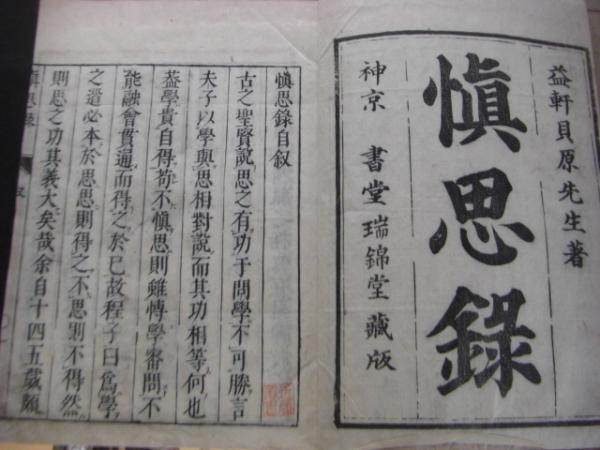 益軒貝原先生著
慎思錄
神京 書堂 瑞錦堂 藏版
慎思錄自叙
古之聖賢說思之有功于問學不可勝言
夫子以學與思相對說而其功相等何也
葢學貴自得苟不慎思則雖博學審問不
能融會貫通而得之於己故程子曰爲學
之道必本於思思則得之不思則不得然
則思之功其義大矣哉余自十四五歲頗
慎思錄
叙